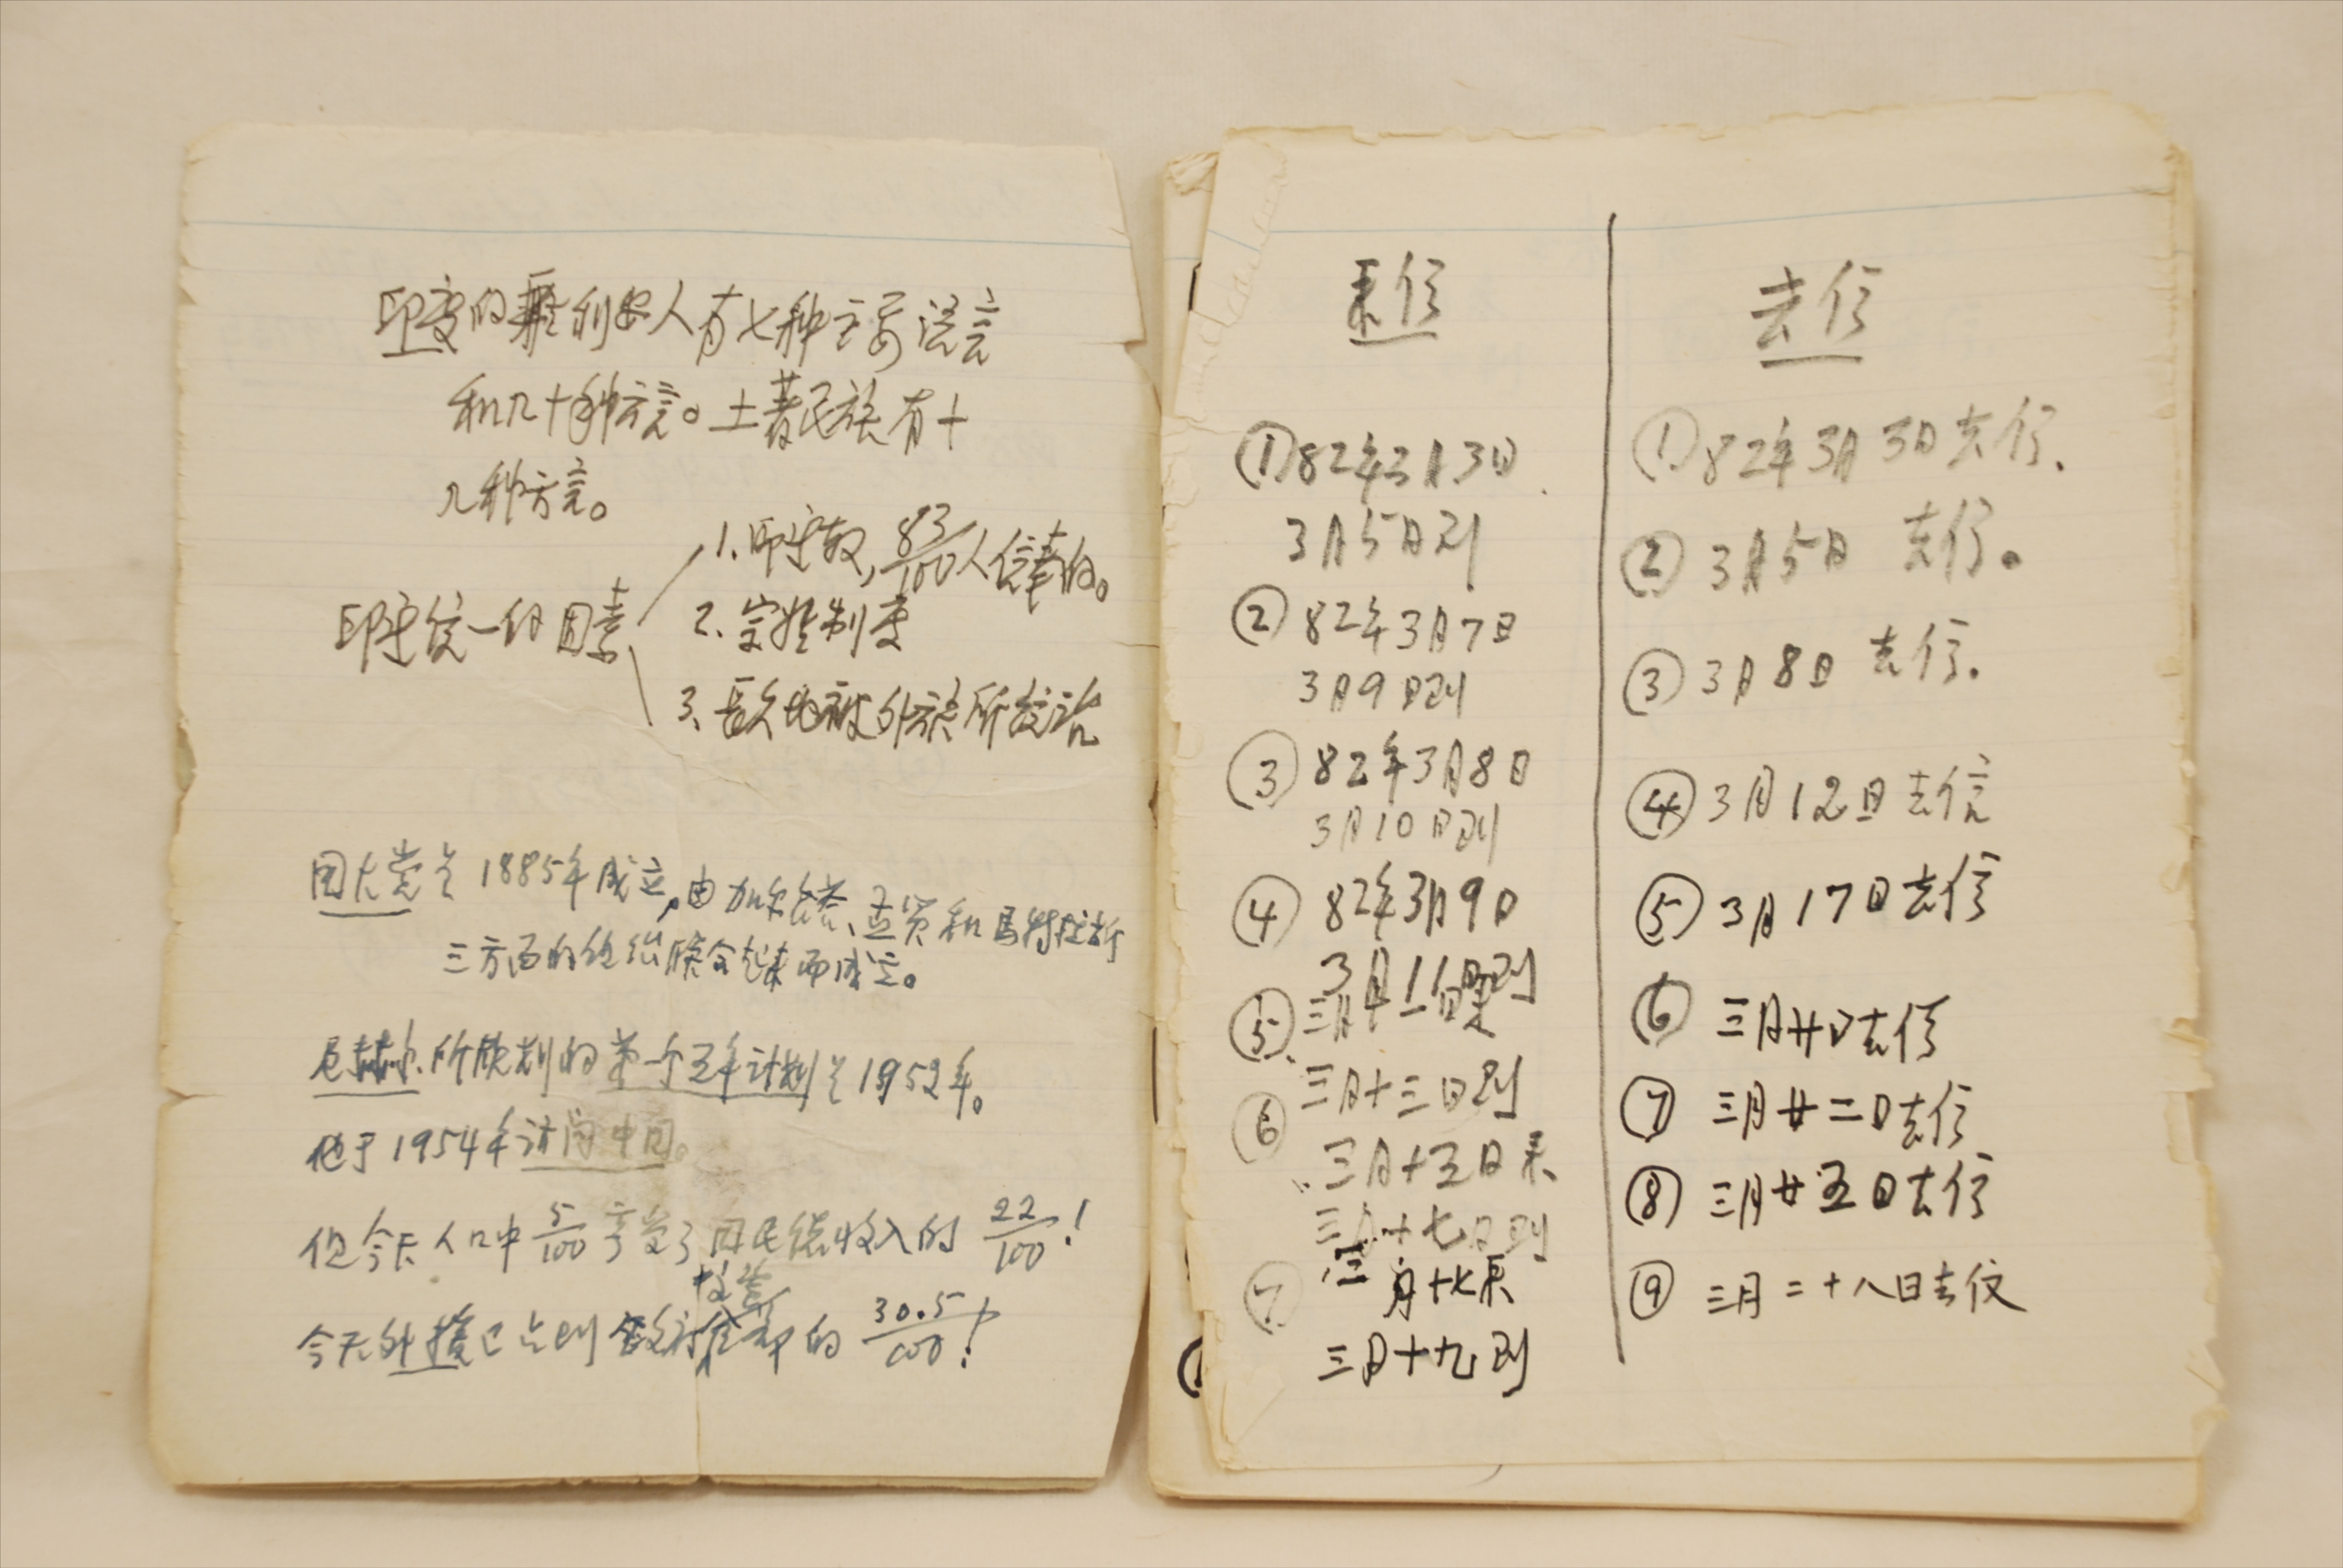 印度的雅利安人有七种主要語言
和几十种方言。土著民族有十
几种方言。
印度统一的因素
1. 印度教, 83/100人信奉的。
2. 宗姓制度
3. 長久地被外族所统治
国大党是1885年成立,由加尔各答、孟买和馬特拉斯
三方面的组织联合起来而成立。
尼赫尔所规划的第一个五年计划是1952年。
他于1954年访问中国。
但今天人口中5/100享受了国民总收入的22/100!
投資
今天外援已占到政府的30.5/100!
来信
①82年3月3日
3月5日到
②82年3月7日
3月9日到
③82年3月8日
3月10日到
④82年3月9日
3月11日到
⑤三月十一日来
三月十三日到
⑥三月十五日来
三月十七日到
⑦三月十七来
三月十九到
去信
①82年3月3日去信.
②3月5日 去信。
③3月8日 去信.
④3月12日去信
⑤3月17日去信
⑥三月廿日去信
⑦三月廿二日去信
⑧三月廿五日去信
⑨三月二十八日去信